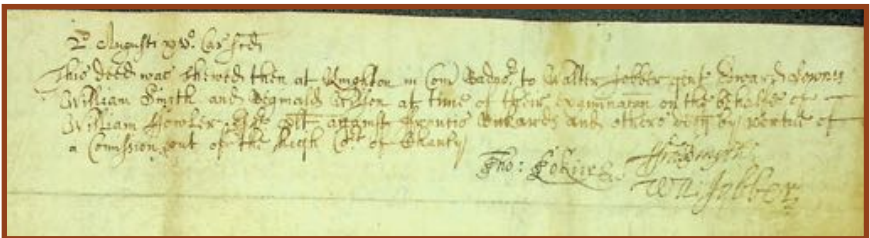 2o Augusti xvo. Car scdi
This deed was shewed then at Knighton in Com Radnor to Walter Jobber gent Edward Downes
William Smyth and Reginald Wilson at time of their examinacon on the behalfe of
William Fowler Esqe plt against Francis Edwards and others defts by vertue of
a Comission out of the high Cort of Chancy
Tho: Fra: Smyth
Wa: Jobber